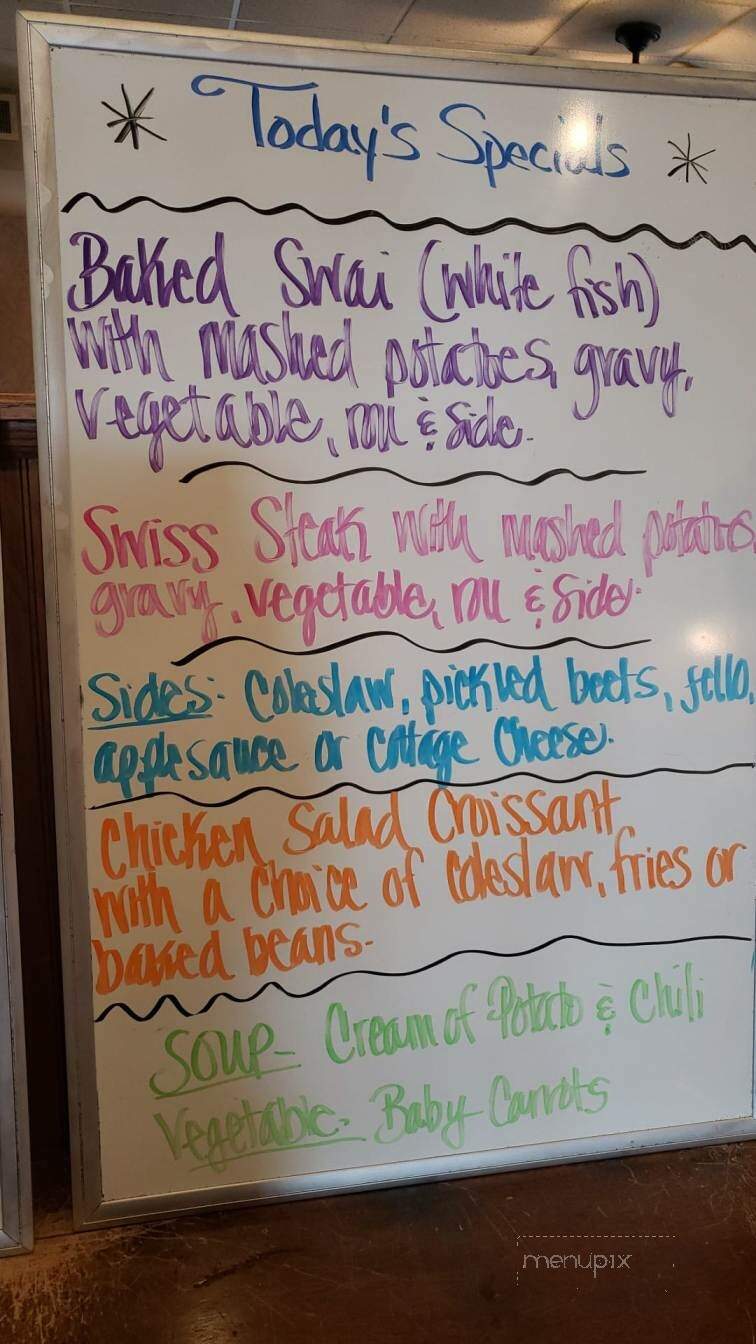 Today's Specials
Baked Swai (white fish)
with mashed potatoes, gravy,
vegetable, roll & side.
Swiss Steak with mashed potatoes,
gravy, vegetable, roll & side.
Sides: Coleslaw, pickled beets, jello,
applesauce or cottage cheese.
Chicken Salad Croissant
with a choice of coleslaw, fries or
baked beans.
Soup- Cream of Potato & Chili
Vegetable- Baby Carrots
menupix